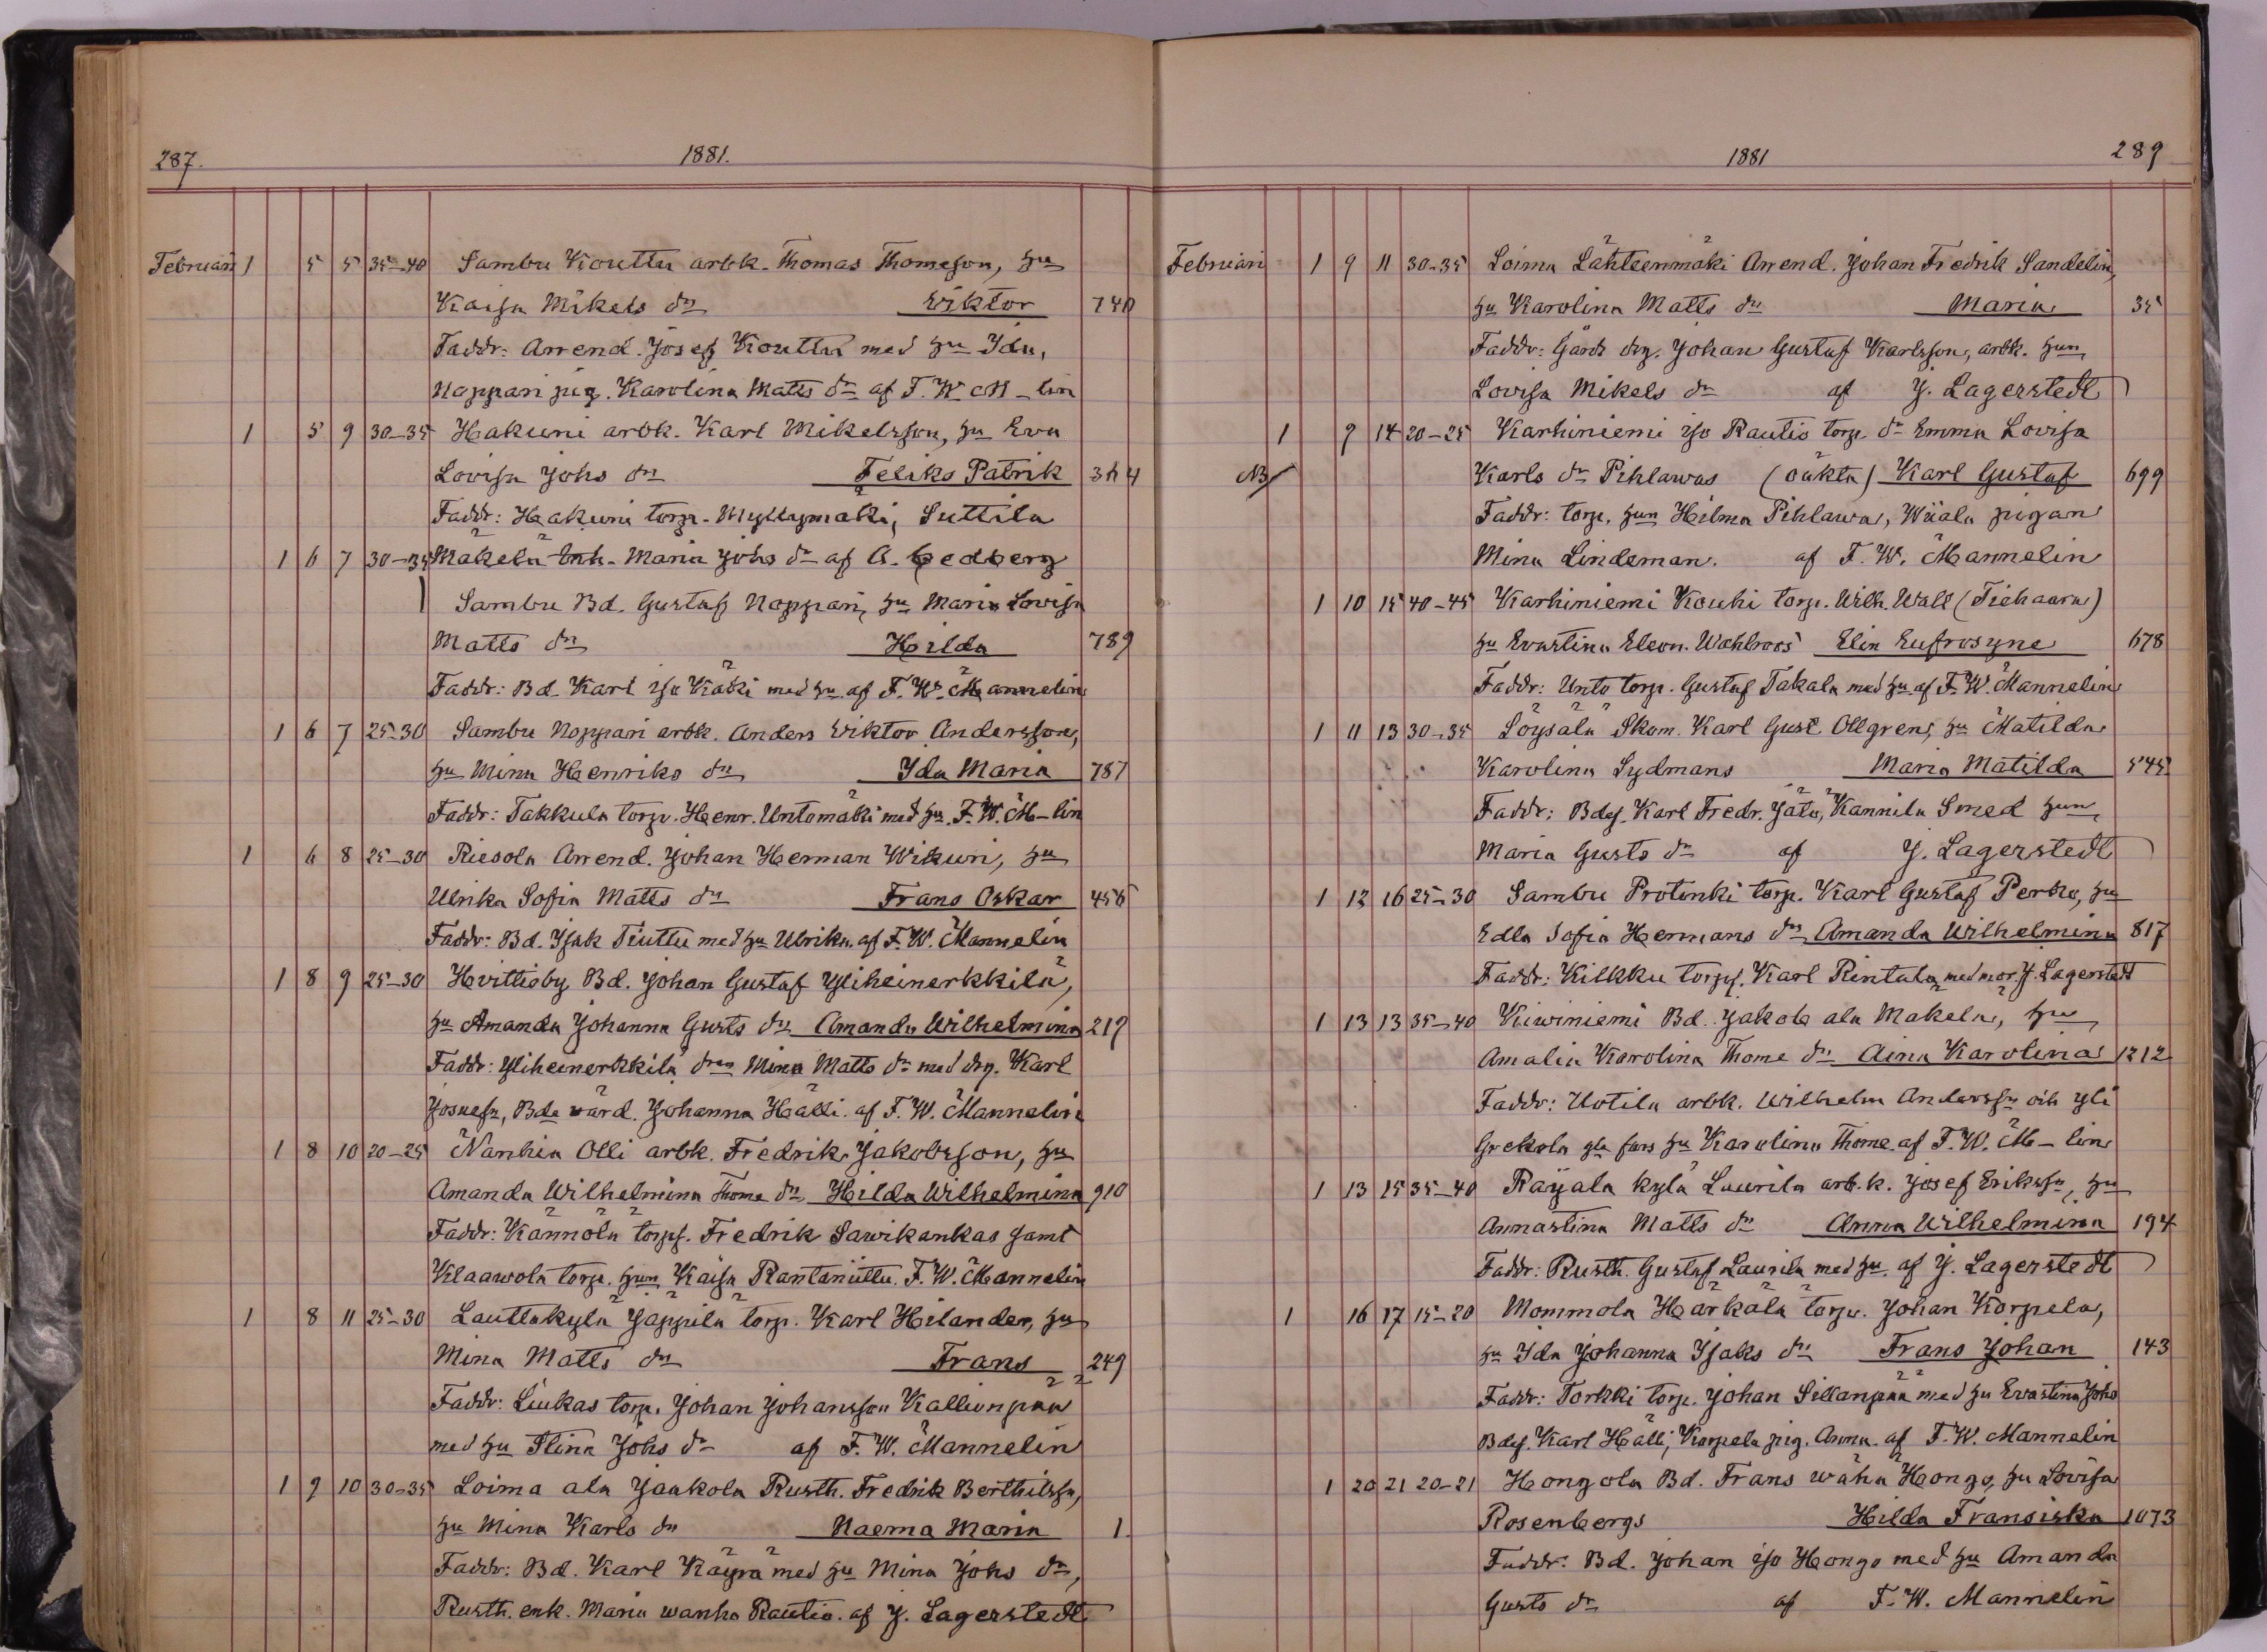 287. 1881.
Februari 1 5 5 35-40 Sambu Kouttu arbk. Thomas Thomeson, hu
Kaisa Mikels dr Wiktor 740
Faddr: Arrend. Josef Kouttu med hu Ida,
Noppari pig. Karolina Matts dr af F. W. M-lin
1 5 9 30-35 Hakuni arbk. Karl Mikelsson, hu Eva
Lovisa Johs dr Feliks Patrik 364
Faddr: Hakuni torp. Myllymäki, Suttila
1 6 7 30-35 Mäkelä Enk. Maria Johs dr af A. Cedberg
Sambu Bd. Gustaf Noppari, hu Maria Lovisa
Matts dr Hilda 789
Faddr: Bd. Karl iso Käöki med hu af F. W. Mannelin
1 6 7 25-30 Sambu Noppari arbk. Anders Wiktor Andersson,
hu Mina Henriks dr Ida Maria 787
Faddr: Takkula torp. Henr. Untomäki med hu. F. W. M-lin
1 6 8 25-30 Riesola Arrend. Johan Herman Wikuri, hu
Ulrika Sofia Matts dr Frans Oskar 456
Faddr: Bd. Isak Tiuttu med hu Ulrika af F. W. Mannelin
1 8 9 25-30 Hvittisby Bd. Johan Gustaf Yliheinerkkilä,
hu Amanda Johanna Gusts dr Amanda Wilhelmina 219
Faddr: Yliheinerkkilä drn Mina Matts dr med drg. Karl
Josuesn, Bde värd. Johanna Hälli. af F. W. Mannelin
1 8 10 20-25 Nanhia Olli arbk. Fredrik Jakobsson, hu
Amanda Wilhelmina Thome dr Hilda Wilhelmina 910
Faddr: Kännölä torps. Fredrik Sawikankas samt
Klaawola torp. hun Kaisa Rantaniittu. F. W. Mannelin
1 8 11 25-30 Lauttakylä Jäppilä torp. Karl Hilander, hu
Mina Matts dr Frans 249
Faddr: Liukas torp. Johan Johansson Kallionpää
med hu Stina Johs dr af F. W. Mannelin
1 9 10 30-35 Loima ala Jaakola Rusth. Fredrik Berthilssn,
hu Mina Karls dr Naema Maria 1.
Faddr: Bd. Karl Käyrä med hu Mina Johs dr,
Rusth. enk. Maria wanha Rautio. af J. Lagerstedt
1881 289
Februari 1 9 11 30-35 Loima Lähteenmäki Arrend. Johan Fredrik Sandelin,
hu Karolina Matts dr Maria 35
Faddr: Gårds drg. Johan Gustaf Karlsson, arbk. hun
Lovisa Mikels dr af J. Lagerstedt
1 9 14 20-25 Karhiniemi iso Rautio torp. dr Emma Lovisa
NB Karls dr Pihlawas (oäkta) Karl Gustaf 699
Faddr: torp. hun Hilma Pihlawa, Wiiala pigan
Mina Lindeman. af F. W. Mannelin
1 10 15 40-45 Karhiniemi Kouhi torp. Wilh. Wall (Tiehaara)
hu Evastina Eleon. Wahlroos Elin Eufrosyne 678
Faddr: Unto torp. Gustaf Takala med hu af F. W. Mannelin
1 11 13 30-35 Löysälä Skom. Karl Gust. Ollgren, hu Matilda
Karolina Sydmans Maria Matilda 545
Faddr: Bdes. Karl Fredr. Jäty, Kannila Smed hun
Maria Gusts dr af J. Lagerstedt
1 12 16 25-30 Sambu Protinki torp. Karl Gustaf Perho, hu
Edla Sofia Hermans dr Amanda Wilhelmina 817
Faddr: Kilkku torps. Karl Rintala med mor. J. Lagerstedt
1 13 13 35-40 Kiwiniemi Bd. Jakob ala Mäkelä, hu
Amalia Karolina Thome dr Aina Karolina 1212
Faddr: Uotila arbk. Wilhelm Anderssn och yli
Grekola gla fars hu Karolina Thome. af F. W. M-lin
1 13 15 35-40 Räijälä kylä Laurila arb.k. Josef Erikssn, hu
Annastina Matts dr Anna Wilhelmina 194
Faddr: Rusth. Gustaf Laurila med hu. af J. Lagerstedt
1 16 17 15-20 Mommola Härkälä torp. Johan Korpela,
hu Ida Johanna Isaks dr Frans Johan 143
Faddr: Torkki torp. Johan Sillanpää med hu Evastina Johs
Bdes. Karl Hälli, Korpela pig. Anna. af F. W. Mannelin
1 20 21 20-21 Hongola Bd. Frans wähä Hongo, hu Lovisa
Rosenbergs Hilda Fransiska 1073
Faddr: Bd. Johan iso Hongo med hu Amanda
Gusts dr af F. W. Mannelin